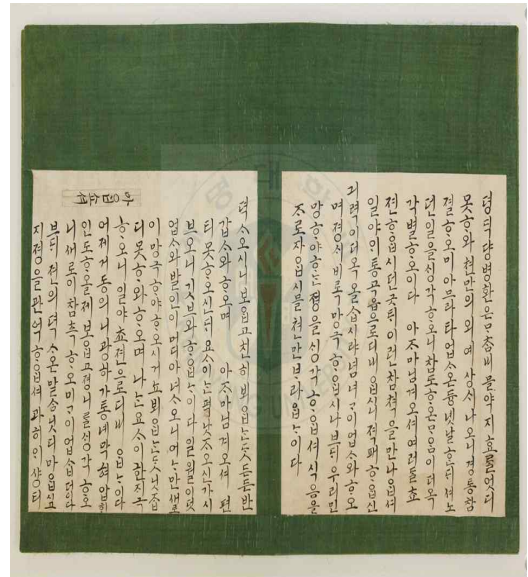 뎡딕댱 병환은 ᄆᆞᄎᆞᆷ내 블야지효ᄅᆞᆯ 어디
못ᄒᆞ와 쳔만의외예 상ᄉᆞ 나오니 경통참
결ᄒᆞ오미 아므라타 업ᄉᆞ온 듕 녯날 ᄒᆞᆫᄃᆡ셔 노
던 일을 ᄉᆡᆼ각ᄒᆞ오니 참도ᄒᆞ온 ᄆᆞ음이 더옥
각별ᄒᆞ오이다 아ᄌᆞ마님겨오셔 여러 ᄃᆞᆯ 쵸
젼ᄒᆞᄋᆞᆸ시던 긋ᄐᆡ 이런 참쳑을 만나ᄋᆞᆸ셔
일야 ᄋᆡ통곡읍으로 디내ᄋᆞᆸ시니 쳑파ᄒᆞᄋᆞᆸ신
긔력이 더옥 올ᄉᆞᆸ시랴 념녀 ᄀᆞ이 업ᄉᆞ와 ᄒᆞ오
며 졍시 비록 망극ᄒᆞᄋᆞᆸ시나 브ᄃᆡ 우리 민
망ᄒᆞ야 ᄒᆞᄂᆞᆫ 졍을 ᄉᆡᆼ각ᄒᆞᄋᆞᆸ셔 식음을
ᄌᆞ로 자ᄋᆞᆸ시믈 쳔만 ᄇᆞ라ᄋᆞᆸᄂᆞ이다
뎍ᄉᆞ오시니 보ᄋᆞᆸ고 친히 뵈ᄋᆞᆸᄂᆞᆫ ᄃᆞᆺ ᄃᆞᆫᄃᆞᆫ 반
갑ᄉᆞ와 ᄒᆞ오며 아ᄌᆞ마님겨오셔 편
티 못ᄒᆞ오시던ᄃᆡ 요ᄉᆞ이ᄂᆞᆫ 퍽 낫ᄌᆞ오신가 시
브오니 깃브와 ᄒᆞᄋᆞᆸᄂᆞ이다 일월이 덧
업ᄉᆞ와 발인이 머디 아녀ᄉᆞ오니 어ᄂᆞ만 새로
이 망극ᄒᆞ야 ᄒᆞ오시거뇨 뵈ᄋᆞᆸᄂᆞᆫ ᄃᆞᆺ 닛ᄌᆞᆸ
디 못ᄒᆞ와 ᄒᆞ오며 나ᄂᆞᆫ 요ᄉᆞ이 한ᄌᆡ 극
ᄒᆞ오니 일야 쵸젼으로 디내ᄋᆞᆸᄂᆞ이다
어제 거동의 니광하 가 압희
인도ᄒᆞ올 제 보ᄋᆞᆸ고 졍니를 ᄉᆡᆼ각ᄒᆞ오
니 새로이 참혹ᄒᆞ오미 ᄀᆞ이업ᄉᆞᆸ더이다
브ᄃᆡ 쳔의 뎍ᄉᆞ온 말ᄉᆞᆷ 닛디 마ᄋᆞᆸ시고
지졍을 관억ᄒᆞᄋᆞᆸ셔 과히 ᄋᆡ샹티
마ᄋᆞᆸ쇼셔